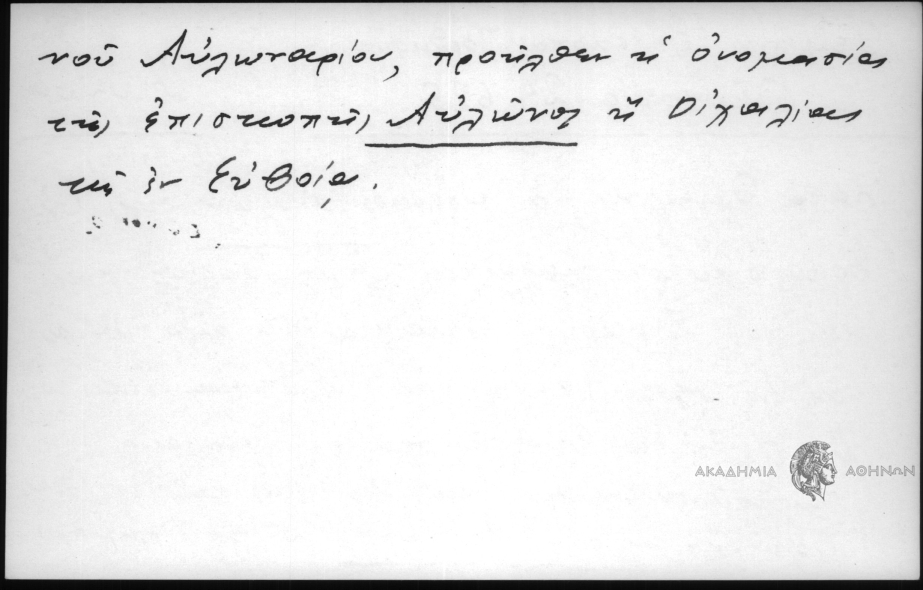 νοῦ Αὐλωναρίου, προῆλθεν ἡ ὀνομασία
τῆς ἐπισκοπῆς Αὐλῶνος ἢ Οἰχαλίας
τῆς ἐν Εὐβοίᾳ.
ΑΚΑΔΗΜΙΑ ΑΘΗΝΩΝ